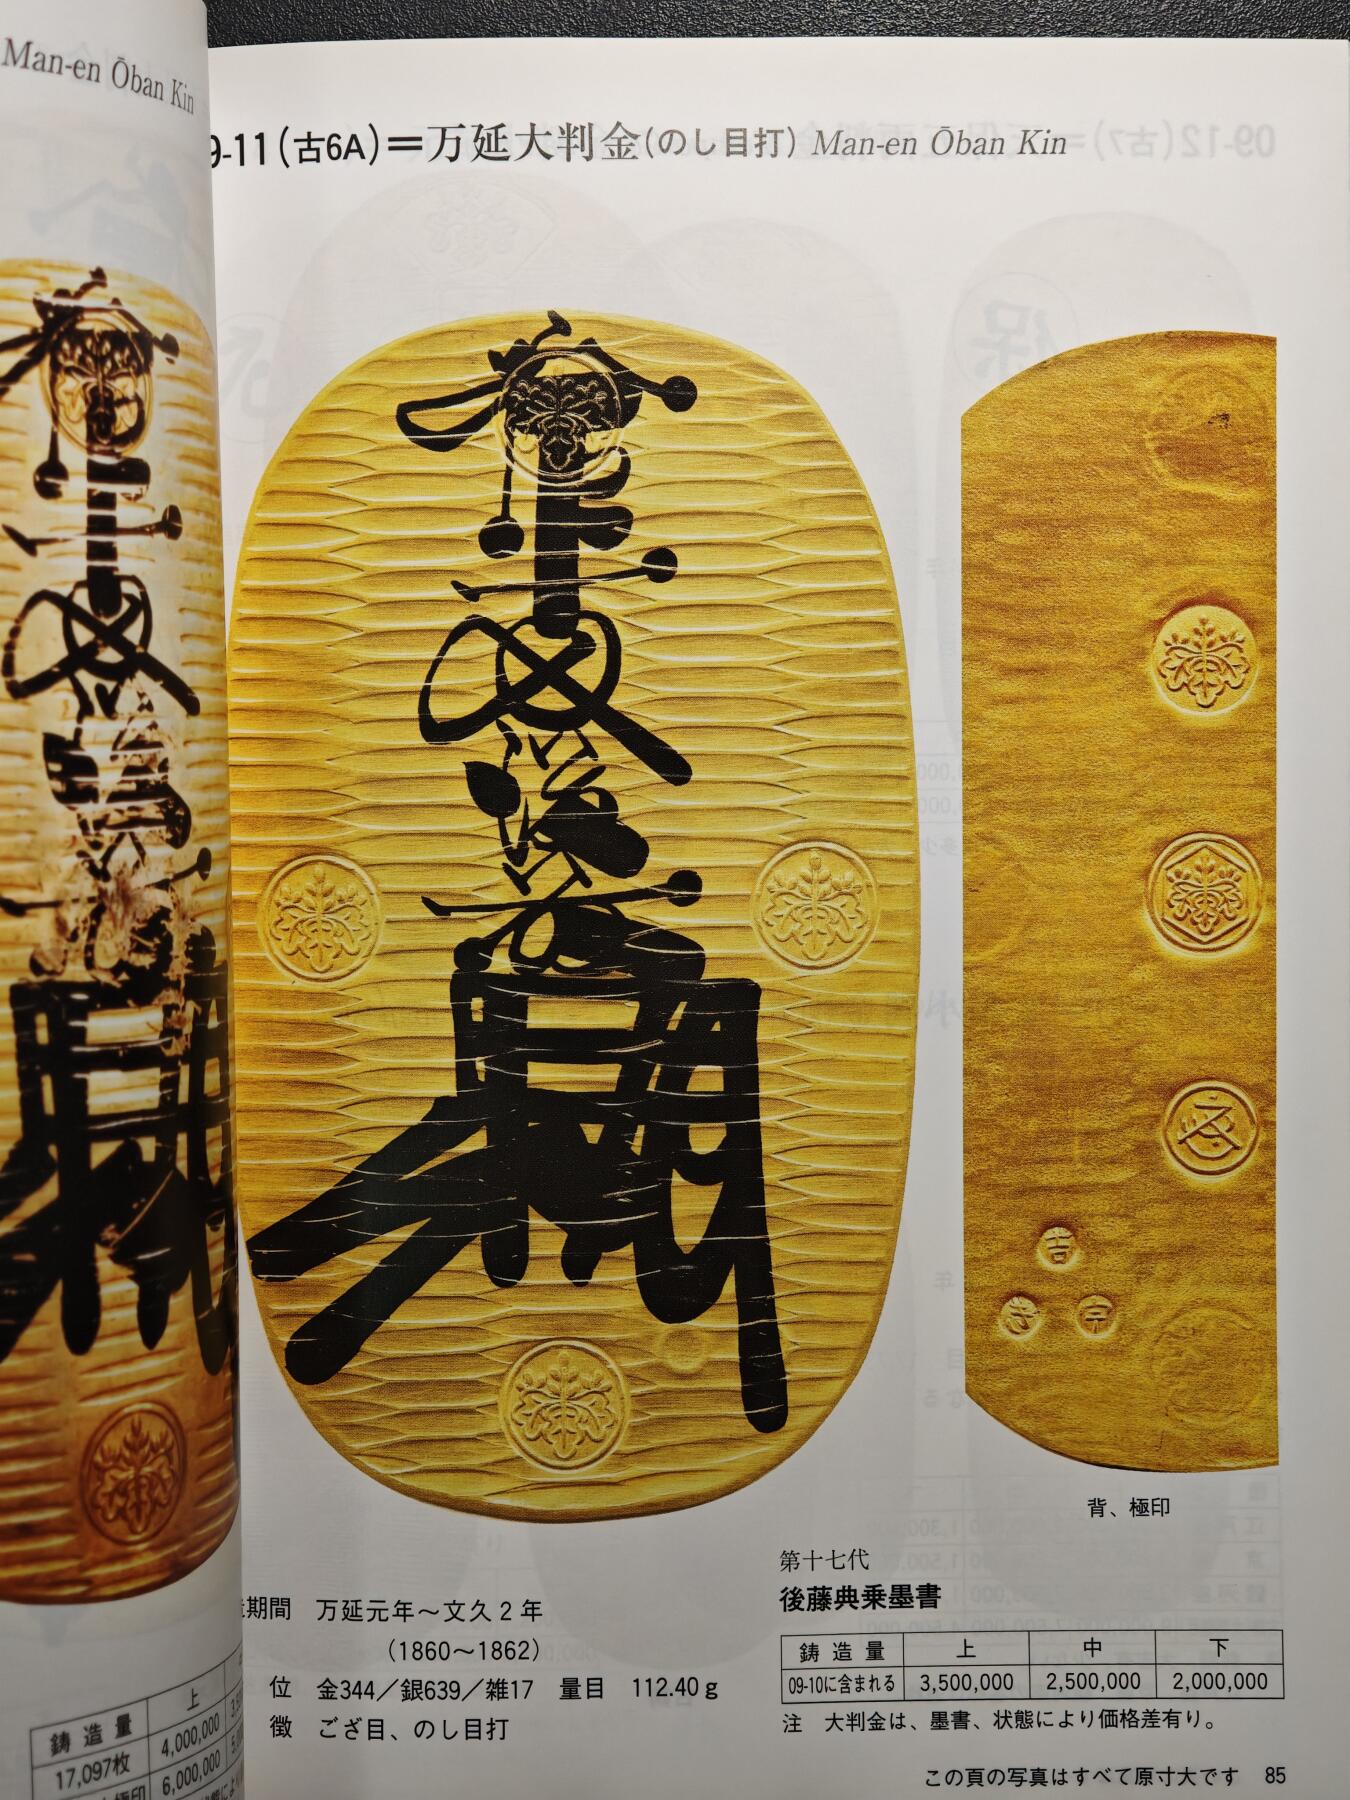 Man-en Ōban Kin
9-11(古6A)=万延大判金(のし目打) Man-en Ōban Kin
吉
宇
背、極印
第十七代
後藤典乗墨書
期間 万延元年〜文久2年
(1860〜1862)
位 金344/銀639/雑17 量目 112.40g
徴 ござ目、のし目打
鋳造量 上 中 下
09-10に含まれる 3,500,000 2,500,000 2,000,000
注 大判金は、墨書、状態により価格差有り。
この頁の写真はすべて原寸大です 85
鋳造量 上
17,097枚 4,000,000
極印 6,000,000